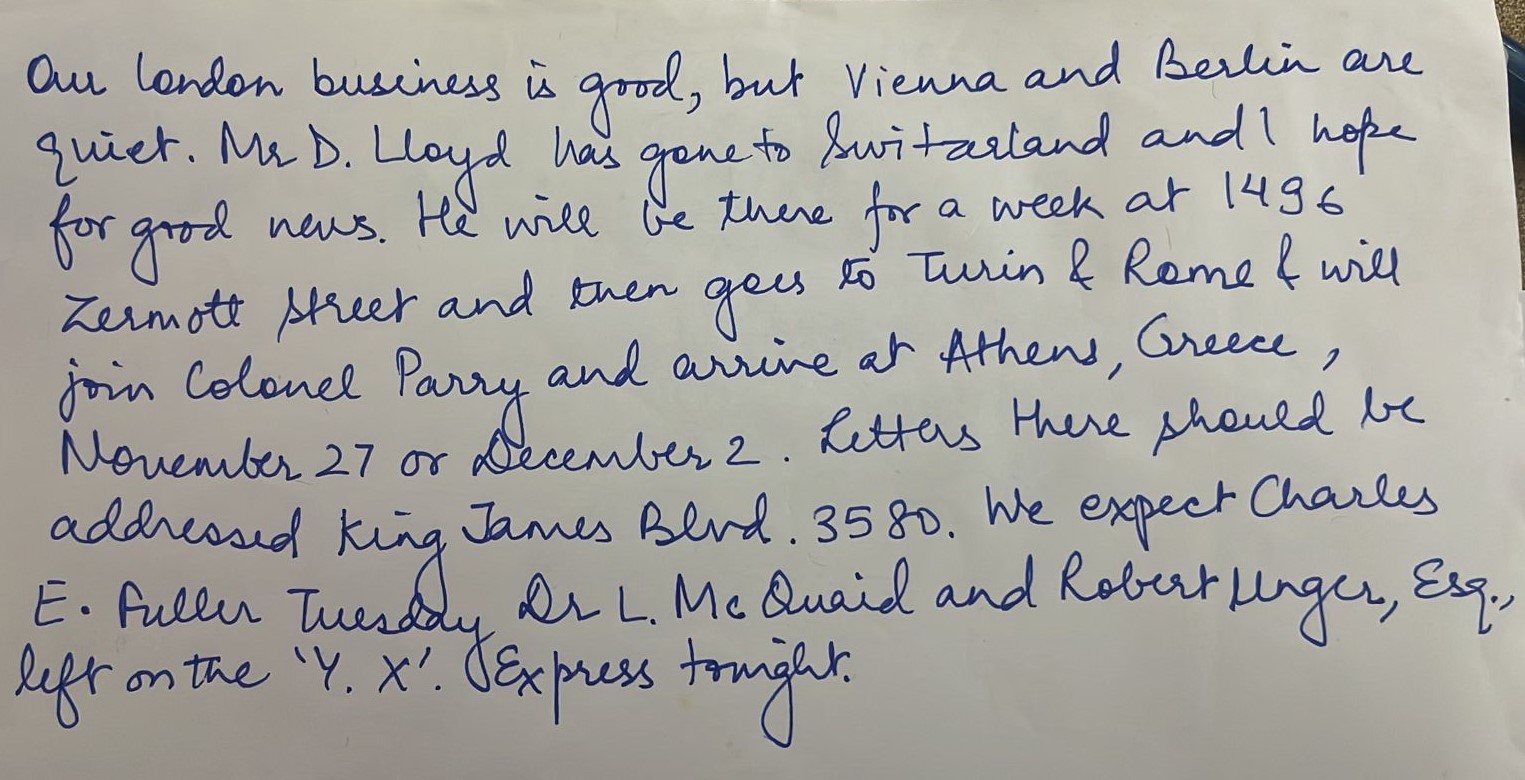 Our london business is good, but Vienna and Berlin are
quiet. Mr D. Lloyd has gone to Switarland and I hope
for good news. He will be there for a week at 1496
Zermott street and then goes to Turin & Rome & will
join Colonel Parry and arrive at Athens, Greece,
November 27 or December 2. Letters there should be
addressed King James Blvd. 3580. We expect Charles
E. Fuller Tuesday Dr L. Mc Quaid and Robert Unger, Esq.,
left on the 'Y. X'. Express tonight.